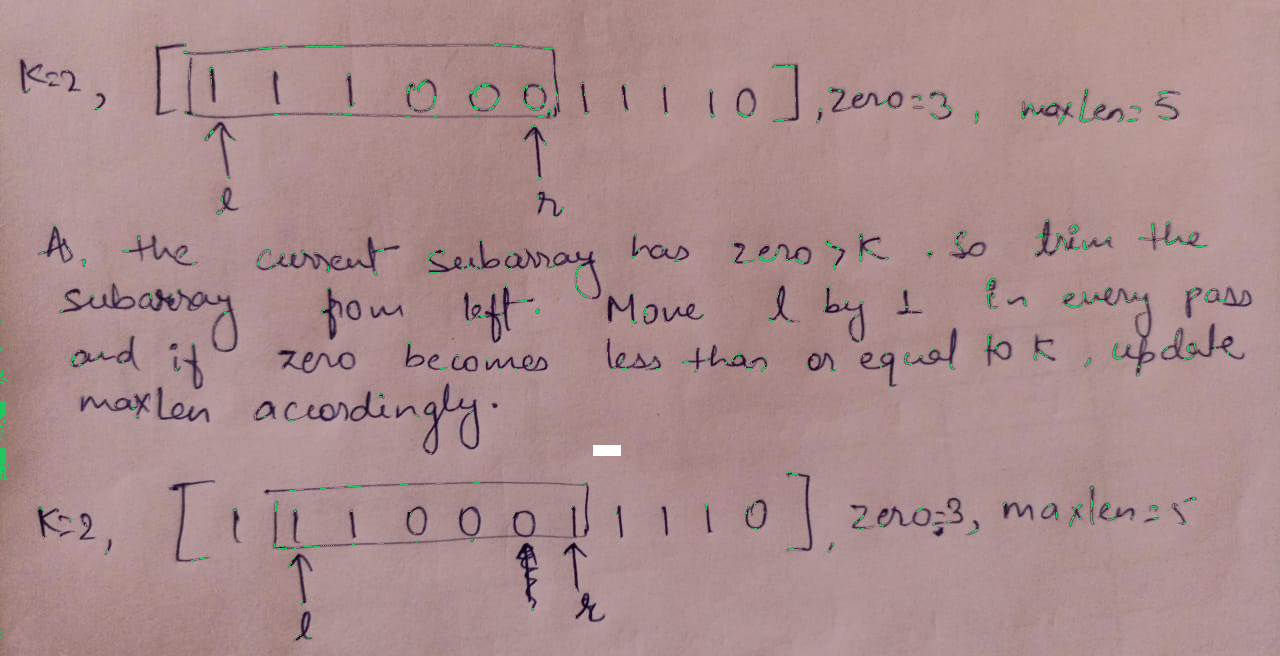 K=2, [ 1 1 1 0 0 0 1 1 1 1 0 ], zero=3, maxlen=5
l r
As, the current subarray has zero > K. So trim the
subarray from left. Move l by 1 in every pass
and if zero becomes less than or equal to K, update
maxlen accordingly.
K=2, [ 1 1 1 0 0 0 1 1 1 1 0 ], zero=3, maxlen=5
l r